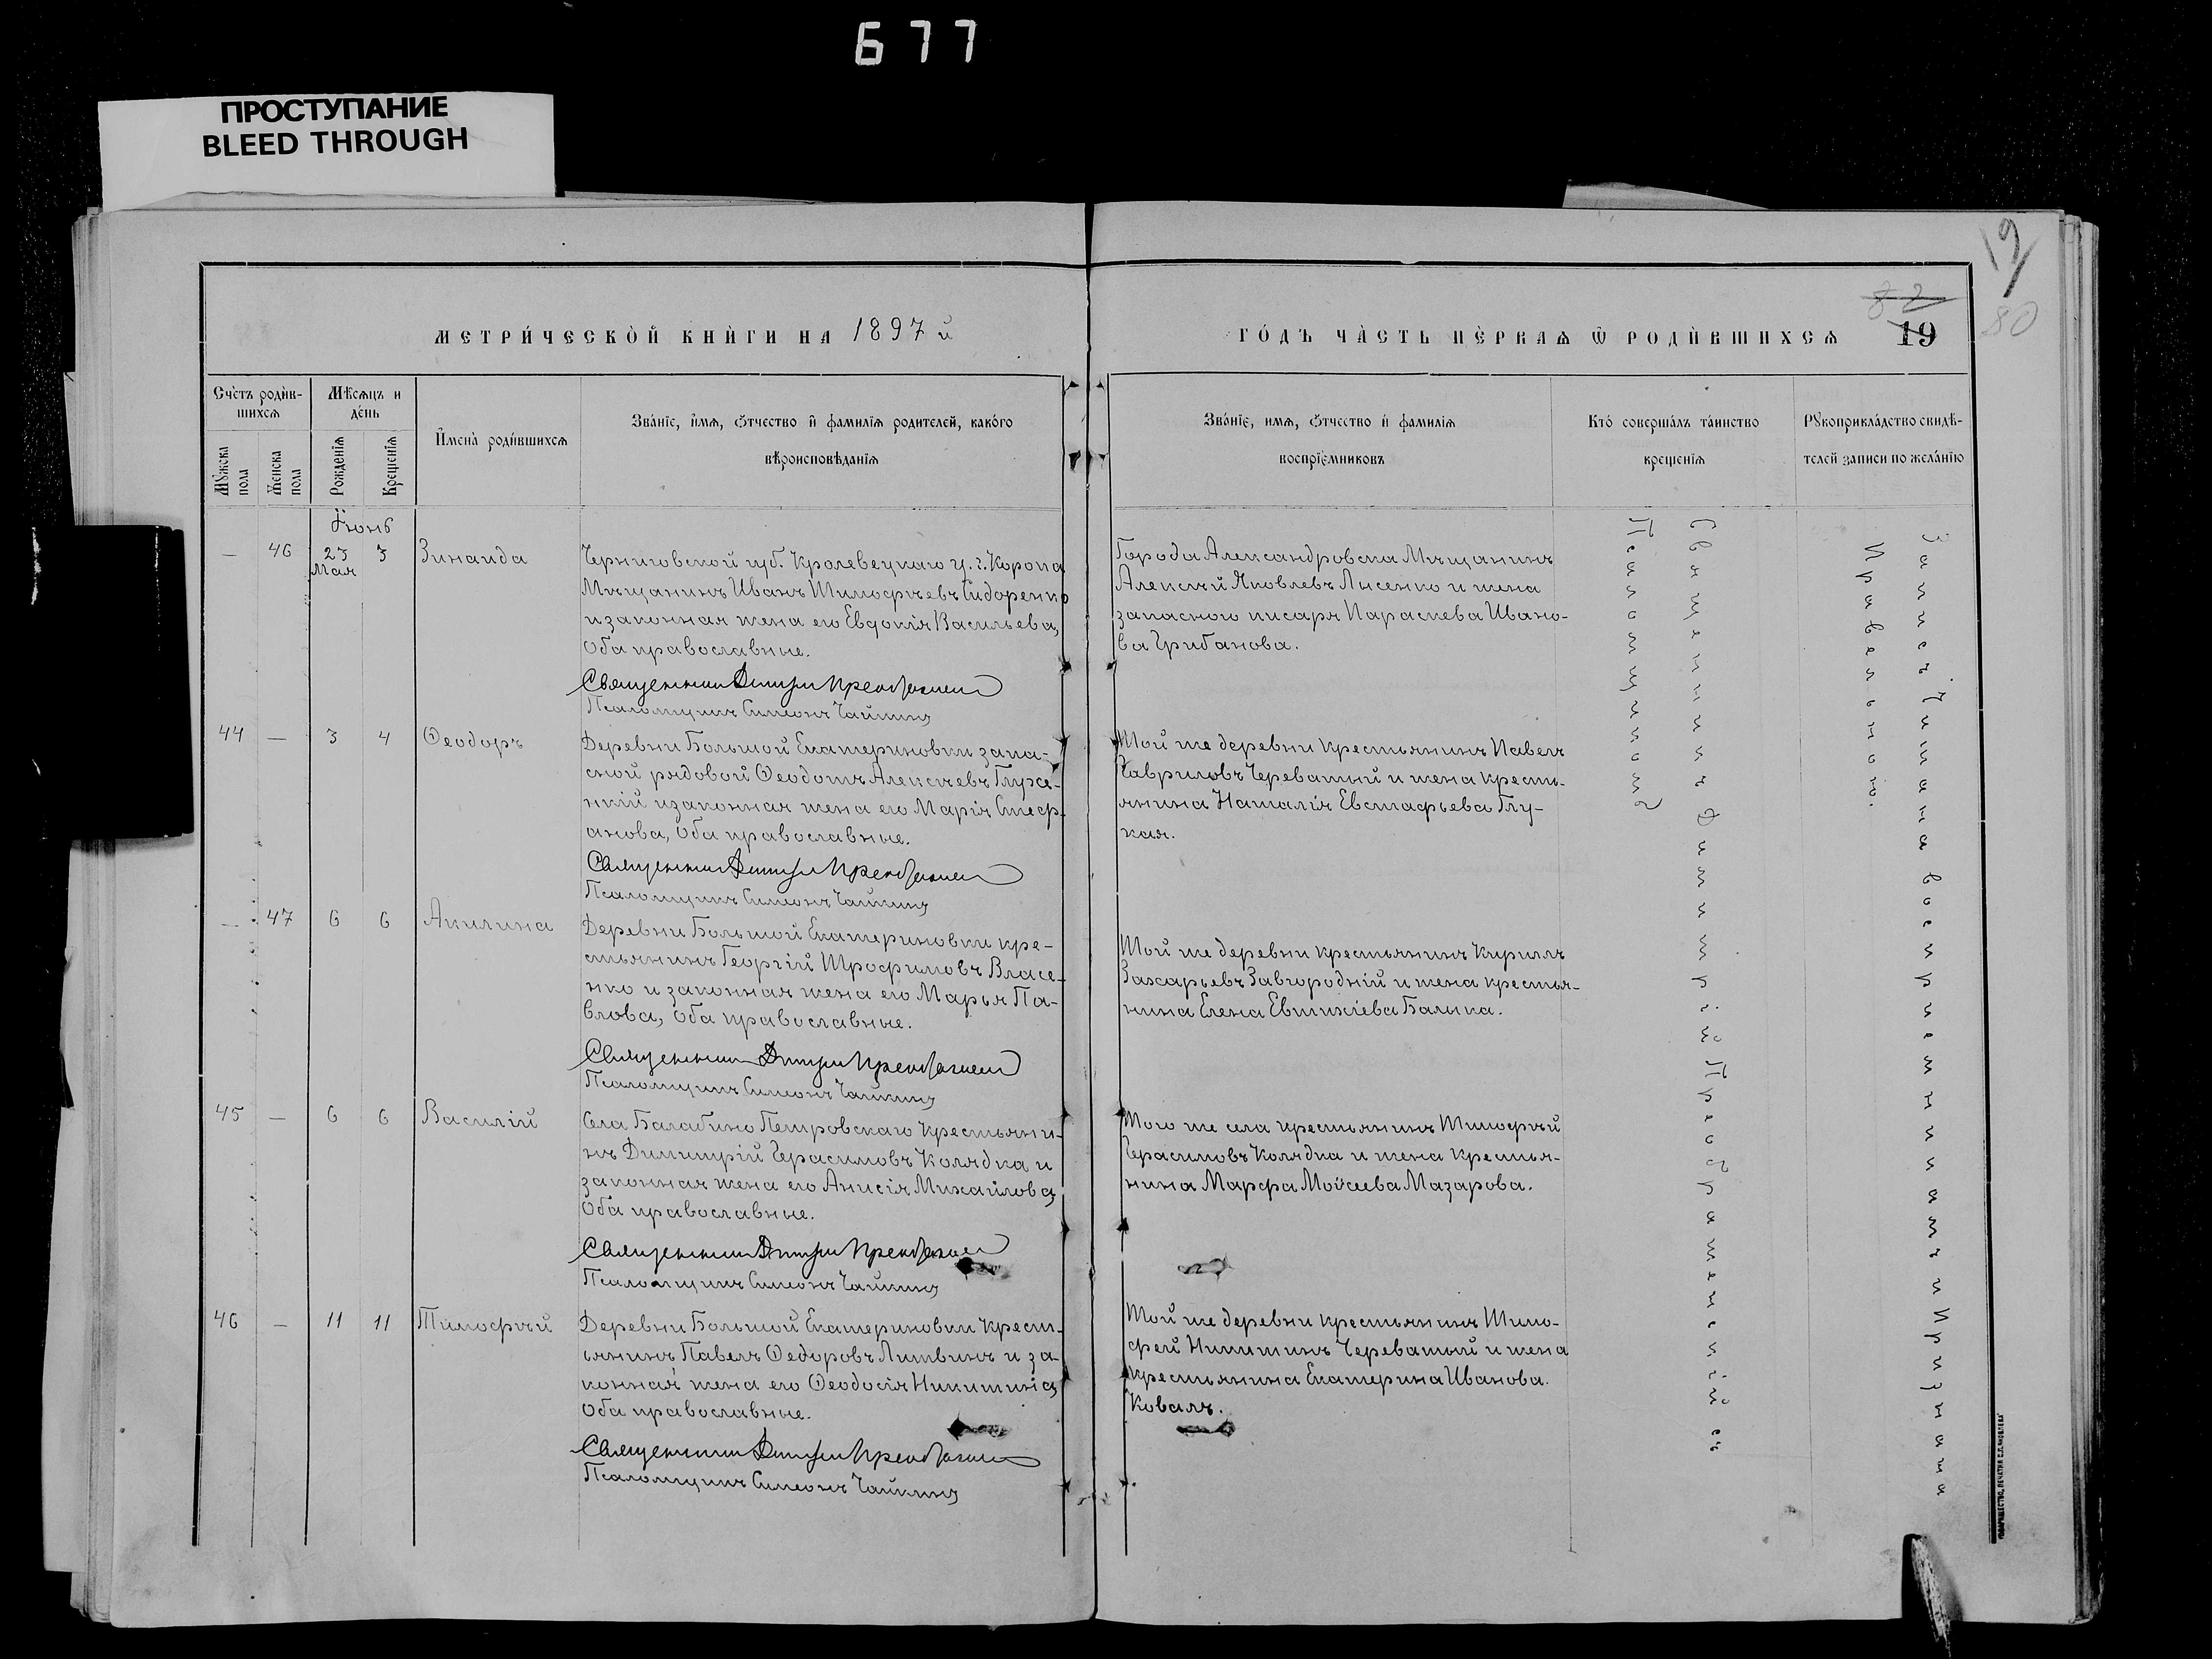 677
ПРОСТУПАНИЕ
BLEED THROUGH
19
82
80
МЕТРИ́ЧЕСКОЙ КНИ́ГИ НА 1897 й
ГО́ДЪ ЧА́СТЬ ПЕ́РВАѦ Ѿ РОДИ́ВШИХСѦ 19
Сче́тъ роди́в-
шихсѧ
Мѣ́сѧцъ и
де́нь
Имена̀ роди́вшихсѧ
Зва́нїе, и́мѧ, ѻ́тчество и фами́лїѧ роди́телей, како́го
вѣроисповѣ́данїѧ
Му́жска
пола
Же́нска
пола
Рожде́нїѧ
Креще́нїѧ
Зва́нїе, имѧ, ѻ́тчество и́ фами́лїѧ
воспрїе́мниковъ
Кто́ соверша́лъ та́инство
креще́нїѧ
Рꙋкоприкла́дство свидѣ́-
телей записи по жела́нїю
Іюнь
— 46 23 Мая 3 Зинаида
Черниговской губ. Кролевецкаго у. г. Коропа
Мѣщанинъ Иванъ Тимофѣевъ Сидоренко
и законная жена его Евдокія Васильева,
Оба православные.
Священникъ Димитрій Преображенскій
Псаломщикъ Симеонъ Чайкинъ
Города Александровска Мѣщанинъ
Алексѣй Яковлевъ Лисенко и жена
запасного писаря Параскева Ивано-
ва Грибанова.
44 — 3 4 Ѳеодоръ
Деревни Большой Екатериновки запа-
сной рядовой Ѳеодотъ Алексѣевъ
и законная жена его Марія Стеф-
анова, Оба православные.
Священникъ Димитрій Преображенскій
Псаломщикъ Симеонъ Чайкинъ
Той же деревни крестьянинъ Павелъ
Гавриловъ Череватый и жена кресть-
янина Наталія Евстафьева Глу-
кая.
— 47 6 6 Акилина
Деревни Большой Екатериновки кре-
стьянинъ Георгій Трофимовъ Власе-
нко и законная жена его Марья Па-
влова, Оба православные.
Священникъ Димитрій Преображенскій
Псаломщикъ Симеонъ Чайкинъ
Той же деревни крестьянинъ Кириллъ
Захарьевъ Завгородній и жена крестья-
нина Елена Евтихіева Балыка.
45 — 6 6 Василій
Села Балабино Петровскаго Крестьяни-
нъ Димитрій Герасимовъ Колядка и
законная жена его Анисія Михайлова,
Оба православные.
Священникъ Димитрій Преображенскій
Псаломщикъ Симеонъ Чайкинъ
Того же села крестьянинъ Тимофей
Герасимовъ Колядка и жена крестья-
нина Марфа Моисеева Мазарова.
46 — 11 11 Тимофей
Деревни Большой Екатериновки крест-
ьянинъ Павелъ Ѳедоровъ Литвинъ и за-
конная жена его Ѳеодосія Никитина,
Оба православные.
Священникъ Димитрій Преображенскій
Псаломщикъ Симеонъ Чайкинъ
Той же деревни крестьянинъ Тимо-
фей Никитинъ Череватый и жена
крестьянина Екатерина Иванова
Коваль.
Священникъ Димитрій Преображенскій съ
Псаломщикомъ
Запись читана воспріемникамъ и признана
правильною.